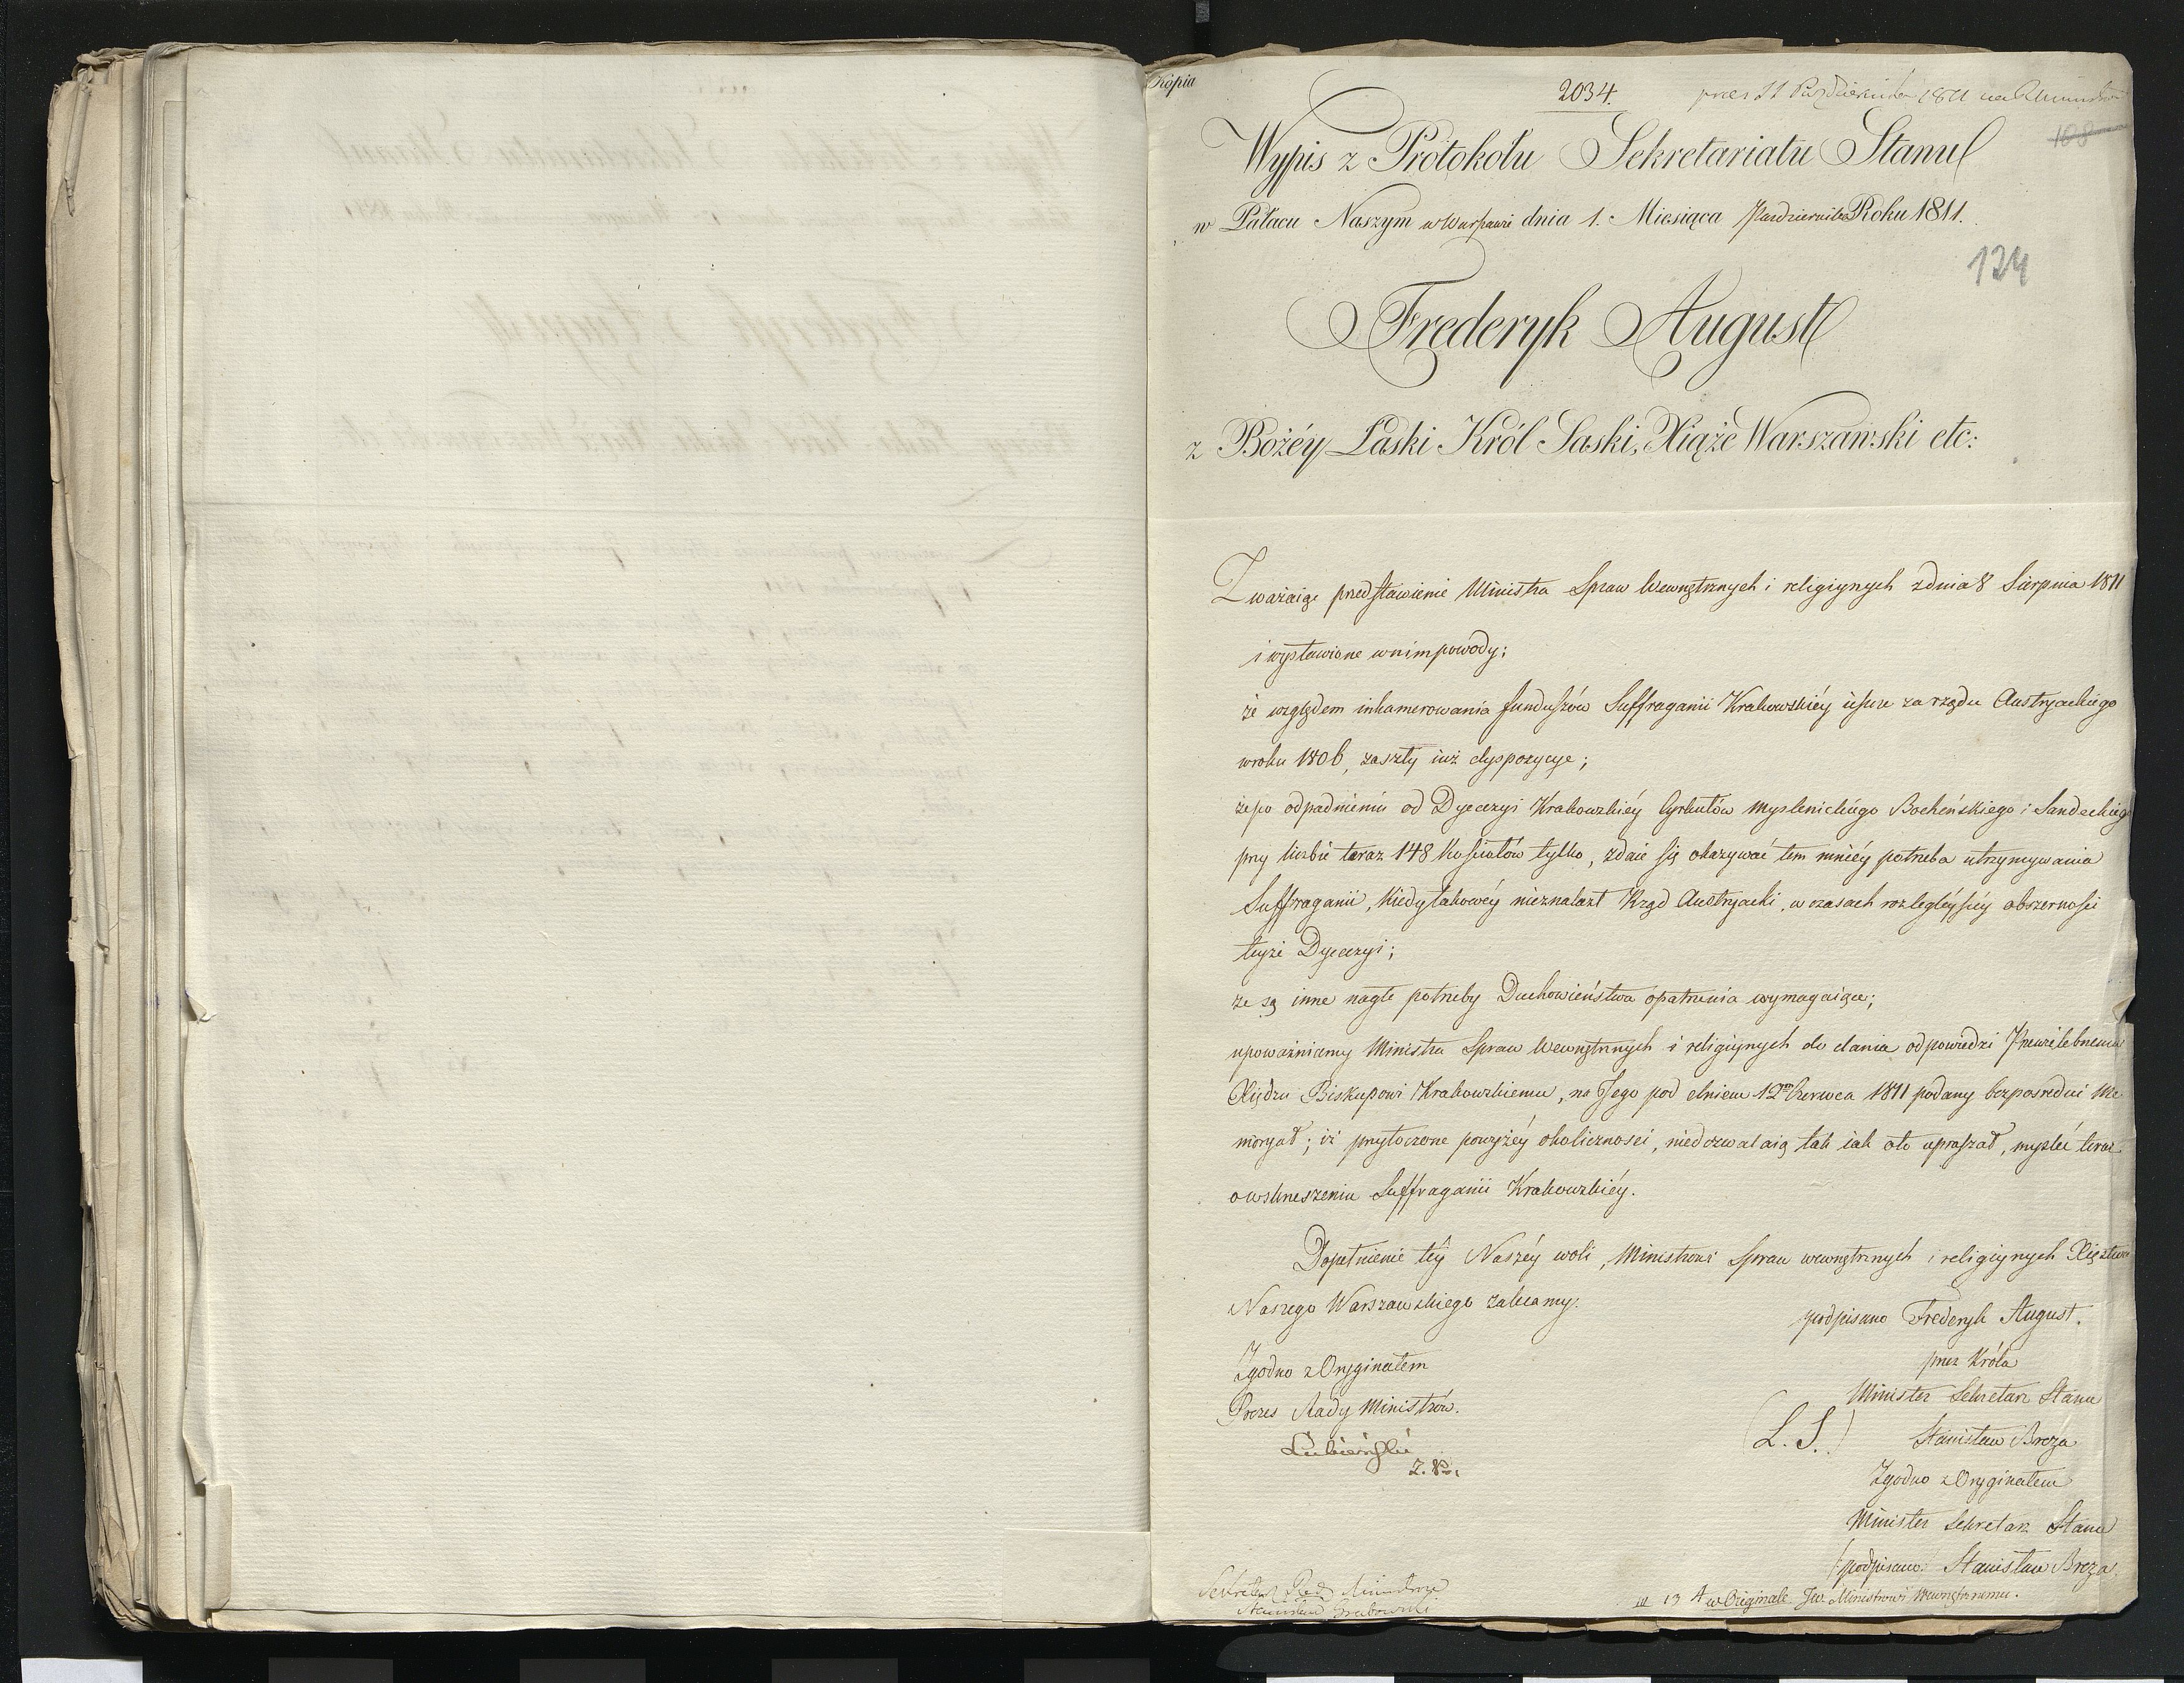 Kopia
2034.
108
Wypis z Protokołu Sekretariatu Stanu
w Pałacu Naszym w Warszawie dnia 1. Miesiąca Października Roku 1811.
124
Frederyk August
z Bożéy Łaski Król Saski, Xiąże Warszawski etc:
Zważaiąc przedstawienie Ministra Spraw Wewnętrznych i religiynych z dnia 8 Sierpnia 1811
i wystawione w nim powody;
że względem inkamerowania funduszów Suffraganii Krakowskiéy ieszcze za rządu Austryackiego
w roku 1806, zaszły iuż dyspozycye;
że po odpadnieniu od Dyecezyi Krakowskiéy Cyrkułów Myslenickiego Bocheńskiego i Sandeckiego
przy liczbie teraz 148 Kościołów tylko, zdaie się okazywać tem mniéy potrzeba utrzymywania
Suffraganii, kiedy takowéy nieznalazł Rząd Austryacki, w czasach rozległéyszéy obszerności
teyże Dyecezyi;
że są inne nagłe potrzeby Duchowieństwa opatrzenia wymagaiące;
upoważniamy Ministra Spraw Wewnętrznych i religiynych do dania odpowiedzi Przewielebnemu
Xiędzu Biskupowi Krakowskiemu, na Jego pod dniem 12m Czerwca 1811 podany bezpośredni Me
moryał; iż przytoczone powyżéy okoliczności, niedozwalaią tak iak oto upraszał, myśleć teraz
o wskrzeszeniu Suffraganii Krakowskiéy.
Dopełnienie téy Naszéy woli, Ministrowi Spraw wewnętrznych i religiynych Xięztwa
Naszego Warszawskiego zalecamy.
podpisano Frederyk August.
przez Króla
Minister Sekretarz Stanu
(L. S.) Stanisław Breza
Zgodno z Oryginałem
Minister Sekretarz Stanu
(podpisano) Stanisław Breza
Zgodno z Oryginałem
Prezes Rady Ministrów.
Łubieński
Z. P.
Sekretarz Rady Ministrów
Stanisław Grabowski
13 A w Originale Jw. Ministrowi Wewnętrznemu.